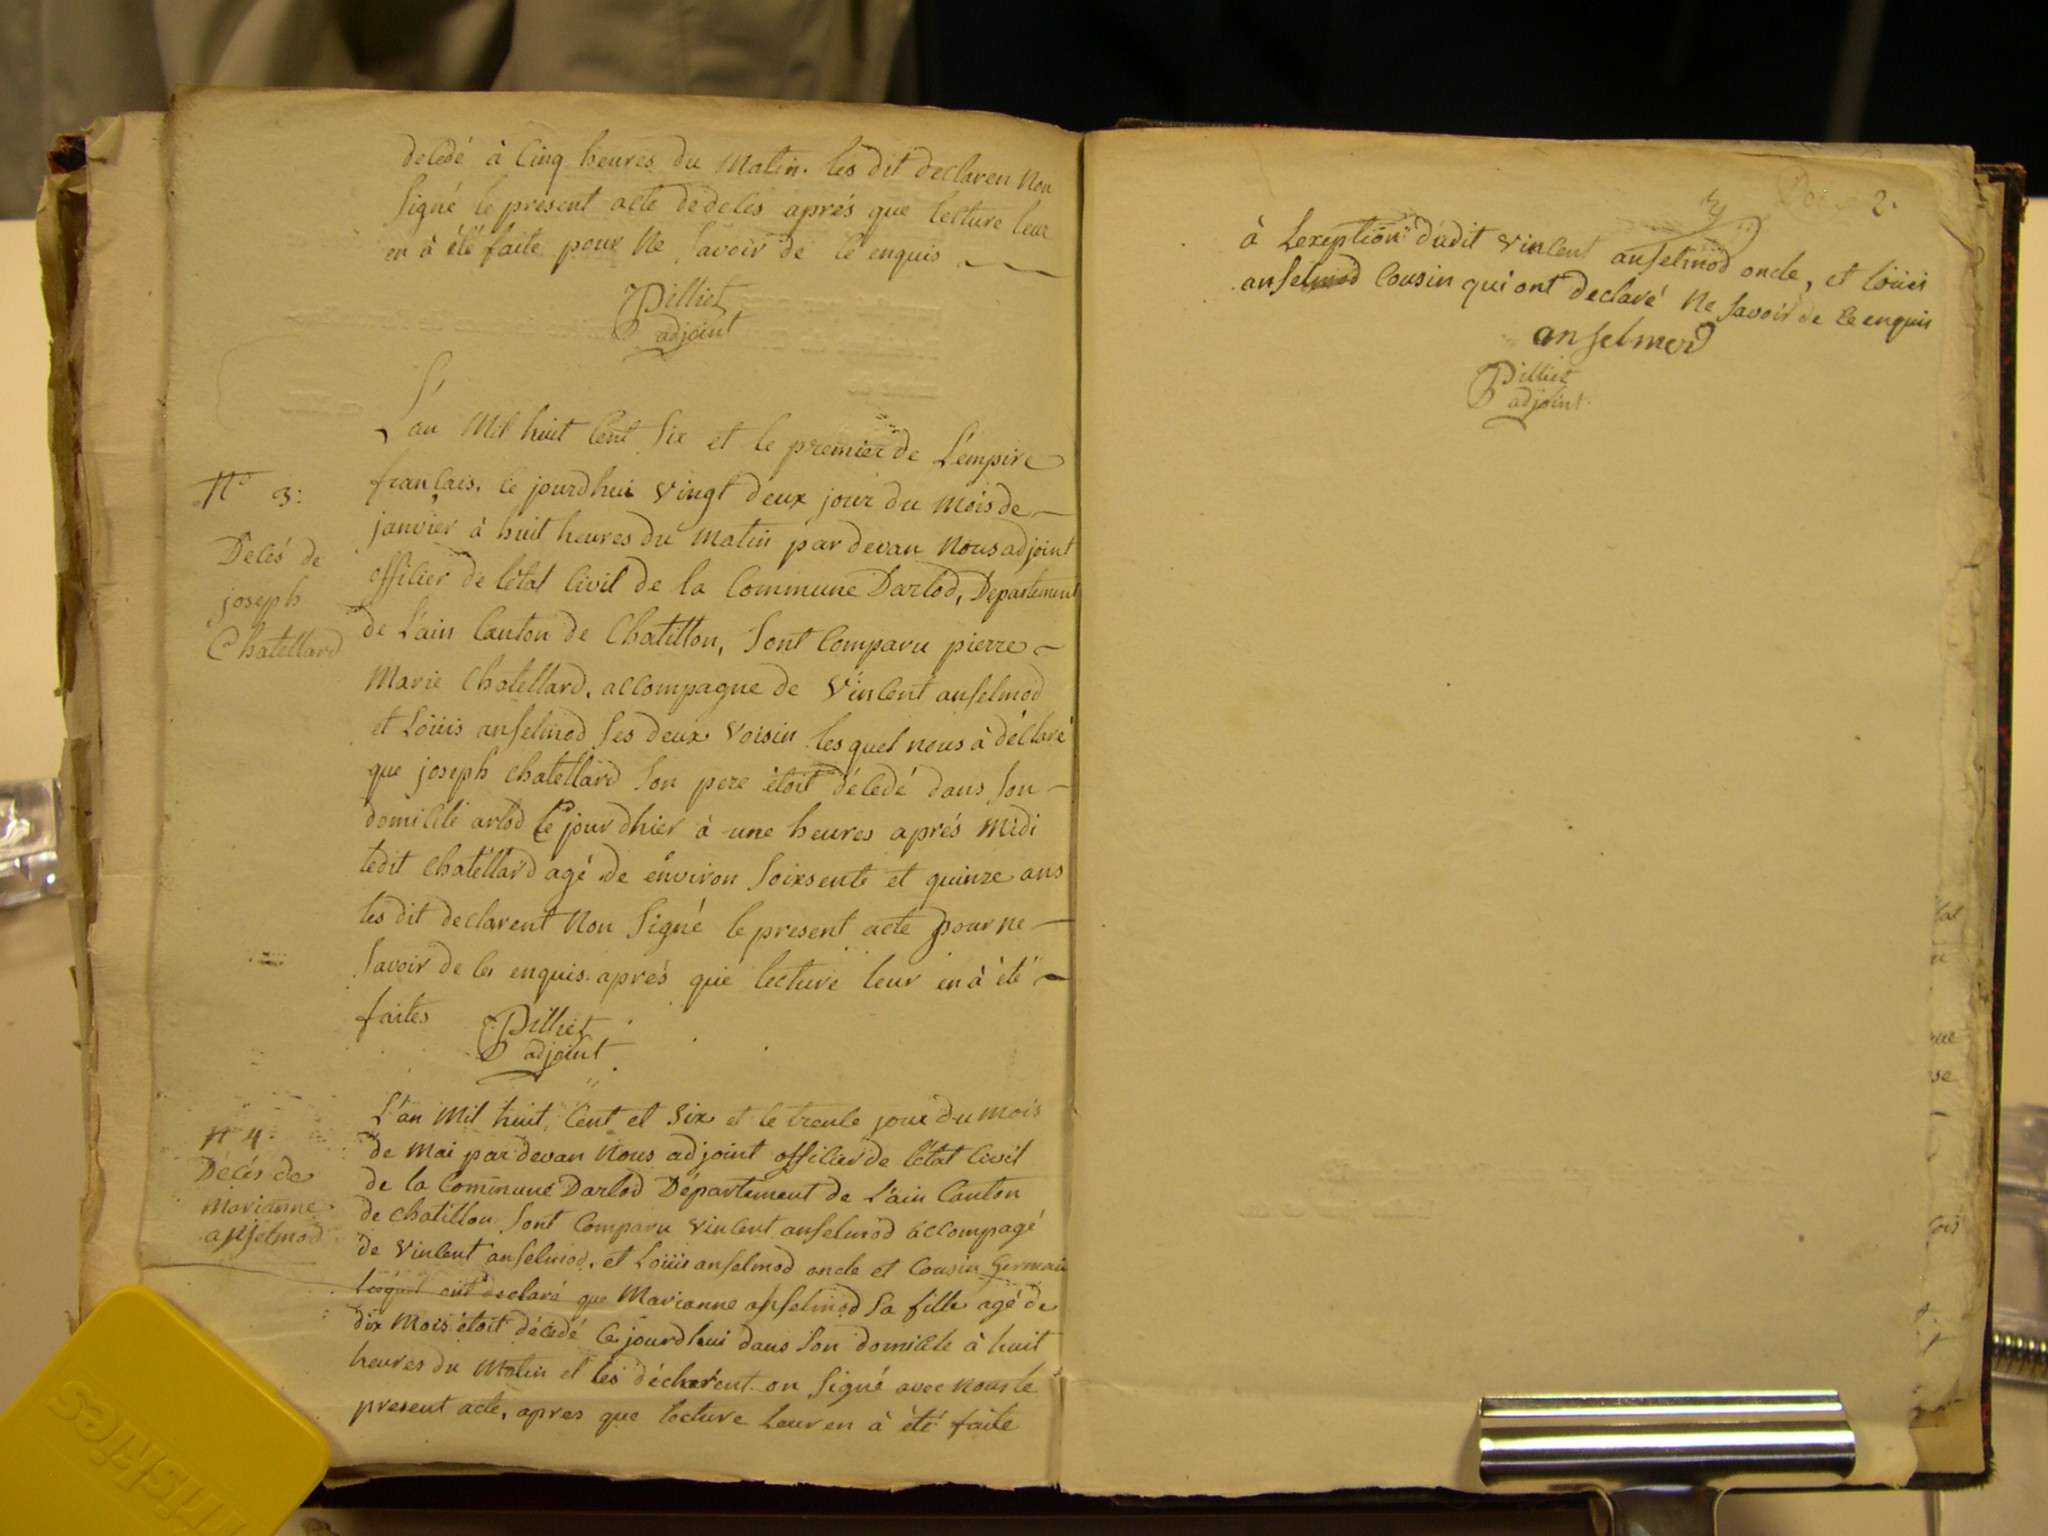 decedé à Cinq heures du Matin. les dit declaren Non
signé le present acte de deces aprés que lecture leur
en à été faite pour Ne savoir de ce enquis
Pilliet
adjoint
L'an Mil huit Cent Six et le premier de L'empire
francais. ce jourdhui vingt deux jour du mois de
N° 3:
janvier à huit heures du matin par devan Nous adjoint
Decés de
officier de l'état Civil de la Commune Darlod, Departement
joseph
de L'ain Canton de Chatillon, Sont Comparu pierre
Chatellard
Marie Chatellard, accompagne de Vincent anselmod
et Loüis anselmod ses deux voisin lesquel nous à déclaré
que joseph chatellard son pere étoit décedé dans son
domicile arlod Ce jour dhier à une heures aprés midi
ledit Chatellard agé de environ soixsente et quinze ans
les dit declarent Non Signé le present acte pour ne
savoir de les enquis aprés que lecture leur en à été
faites
Pilliet
adjoint
L'an Mil huit Cent et six et le trente jour du mois
N° 4:
de mai par devan Nous adjoint officier de l'état Civil
Décés de
de la Commune Darlod Département de L'ain Canton
marianne
de chatillon Sont Comparu vincent anselmod accompagé
anselmod
de vincent anselmod, et Loüis anselmod oncle et Cousin Germain
lesquel ont declaré que Marianne anselmod sa fille agé de
dix Mois étoit décedé Ce jourdhui dans Son domicile à huit
heures du Matin et les déclarent on Signé avec Nous le
present acte, apres que lecture Leur en à été faite
2.
à Lexeption dudit vincent anselmod oncle, et Loüis
anselmod Cousin qui ont declaré Ne savoir de ce enquis
anselmod
Pilliet
adjoint
Fiskies